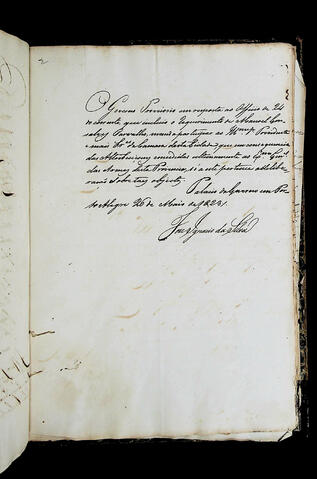 O Governo Provisorio em resposta ao Officio de 24
do corrente, que incluio o Requerimento de Manoel Gon-
salves Carvalho, manda participar ao Illmo Presidente
e mais Srs da Camara desta Cidade, que em consequencia
das medidas ultimamente
das Armas desta Provincia, só a este pertence a delibe-
ração sobre taes objectos.
Palacio do Governo em Por-
to Alegre 26 de Maio de 1823.
José Ignacio da Silva